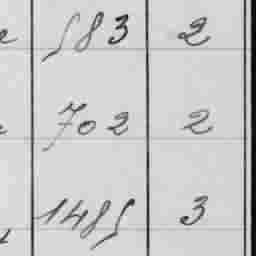 583 2
702 2
1485 3